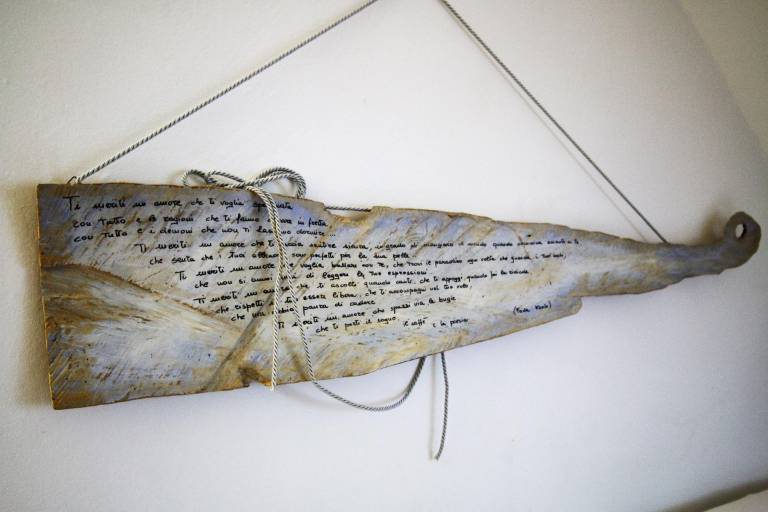 Ti meriti un amore che ti voglia spettinata
con tutto e le ragioni che ti fanno alzare in fretta
con tutto e i demoni che non ti lasciano dormire
Ti meriti un amore che ti faccia sentire sicura, in grado di mangiarsi il mondo quando cammina accanto a te
che senta che i tuoi abbracci sono perfetti per la sua pelle
Ti meriti un amore che voglia ballare con te, che trovi il paradiso ogni volta che guarda i tuoi occhi,
che non si annoi mai di leggere le tue espressioni
Ti meriti un amore che ti ascolti quando canti, che ti appoggi quando fai la ridicola
che rispetti il tuo essere libera, che ti accompagni nel tuo volo,
che non abbia paura di cadere
Ti meriti un amore che spazzi via le bugie
che ti porti il sogno il caffè e la poesia
(Frida Kahlo)